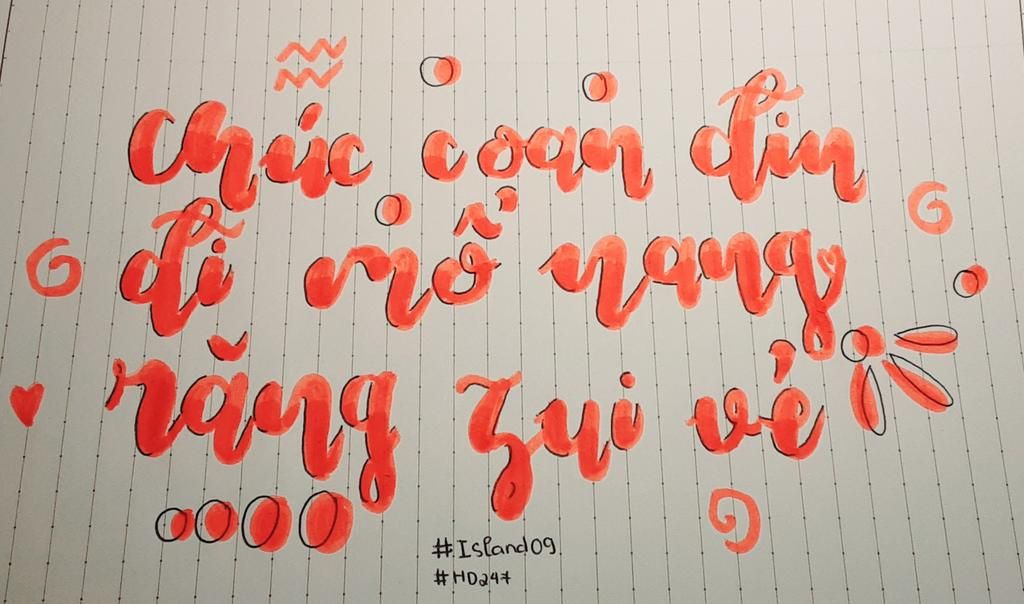 chúc coan đin
đi mổ nang
răng zui vẻ
#Island09
#HD247